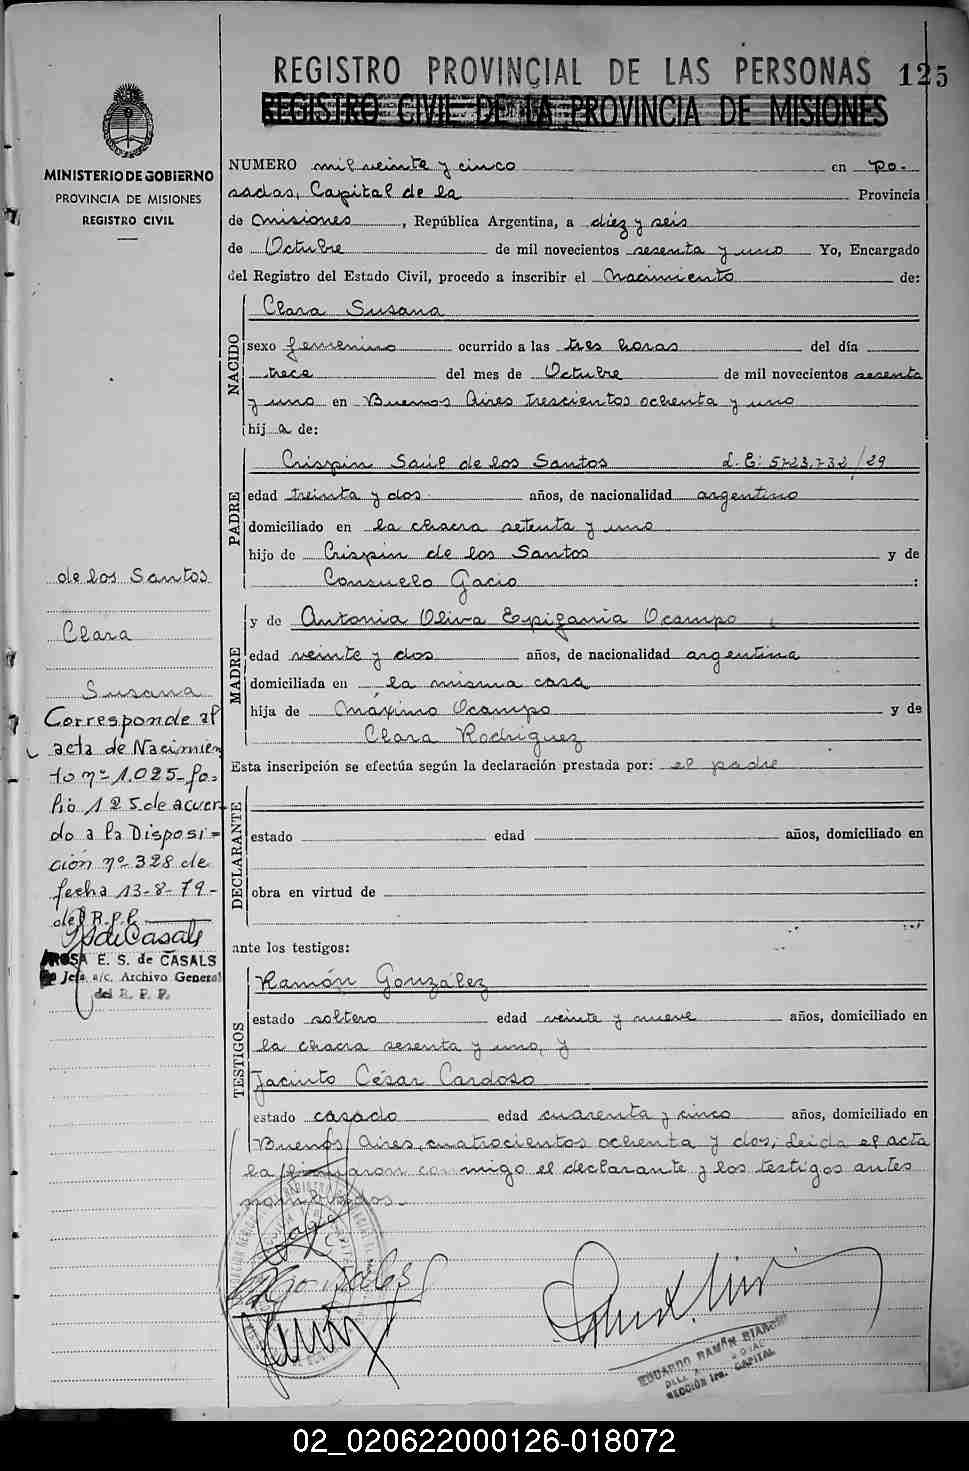 REGISTRO PROVINCIAL DE LAS PERSONAS 125
REGISTRO CIVIL DE LA PROVINCIA DE MISIONES
MINISTERIO DE GOBIERNO
PROVINCIA DE MISIONES
REGISTRO CIVIL
NUMERO mil veinte y cinco en Po-
sadas, Capital de la Provincia
de Misiones, República Argentina, a diez y seis
de Octubre de mil novecientos sesenta y uno Yo, Encargado
del Registro del Estado Civil, procedo a inscribir el Nacimiento de:
NACIDO
Clara Susana
sexo femenino ocurrido a las tres horas del día
trece del mes de Octubre de mil novecientos sesenta
y uno en Buenos Aires trescientos ochenta y uno
hij a de:
PADRE
Crispin Saúl de los Santos L. E: 5723.732/29
edad treinta y dos años, de nacionalidad argentino
domiciliado en la chacra setenta y uno
hijo de Crispin de los Santos y de
Consuelo Gacio :
MADRE
y de Antonia Oliva Epifania Ocampo
edad veinte y dos años, de nacionalidad argentina
domiciliada en la misma casa
hija de Máximo Ocampo y de
Clara Rodriguez
Esta inscripción se efectúa según la declaración prestada por: el padre
DECLARANTE
estado edad años, domiciliado en
obra en virtud de
ante los testigos:
TESTIGOS
Ramón González
estado soltero edad veinte y nueve años, domiciliado en
la chacra sesenta y uno, y
Jacinto César Cardoso
estado casado edad cuarenta y cinco años, domiciliado en
Buenos Aires, cuatrocientos ochenta y dos, Leida el acta
la firmaron conmigo el declarante y los testigos antes
nombrados.-
de los Santos
Clara
Susana
Corresponde al
acta de Nacimien
to nº 1.025-fo-
lio 125 de acuer-
do a la Disposi=
ción nº 328 de
fecha 13-8-79-
del R.P.P.
ROSA E. S. de CASALS
Jefa a/c. Archivo General
del R. P. P.
Gonzales
EDUARDO RAMÓN
SECCIÓN 1ra. CAPITAL
02_020622000126-018072